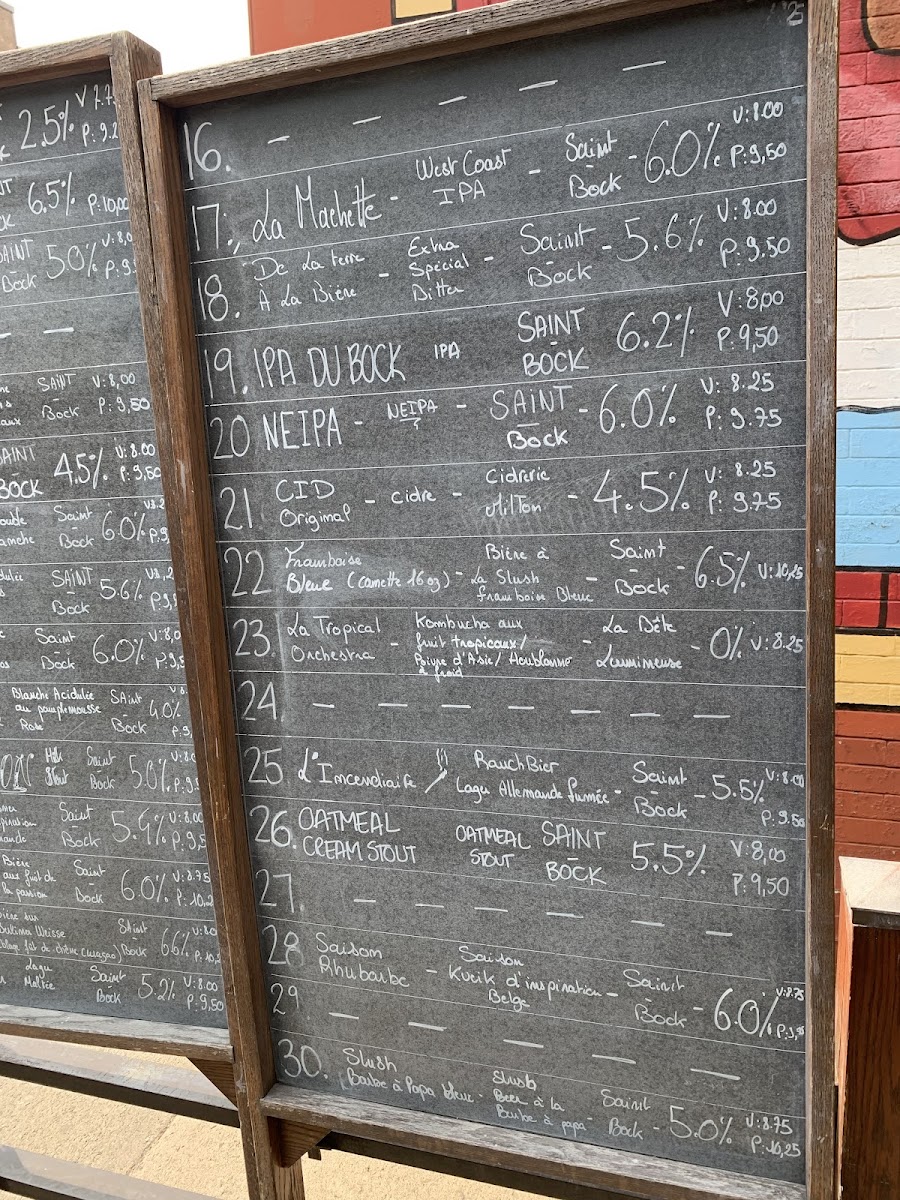 2.5%
P: 9.2
6.5% P: 10,00
SAINT Bock 5.0% V: 8,0
P: 9.5
SAINT Bock V: 8,00
P: 9,50
SAINT BOCK 4.5% V: 8.00
P: 9,50
Saint Bock 6.0%
SAINT Bock 5.6%
Saint Bock 6.0% V: 8,0
Blanche Acidulée au pamplemousse Rose SAint Bock 4.0%
Stout Saint Bock 5.0%
Saint Bock 5.4% V: 8,00
Bière aux fruit de la passion Saint Bock 6.0% V: 8.75
P: 10.2
Saint Bock
Lagu Maltée Saint Bock 5.2% V: 8.00
P: 9,50
16. – – – – –
17. La Machette - West Coast IPA - Saint Bock - 6.0% V: 8.00
P: 9,50
18. De La terre À La Bière - Extra Spécial Ditter - Saint Bock - 5.6% V: 8.00
P: 9.50
19. IPA DU BOCK IPA SAINT BOCK 6.2% V: 8,00
P: 9,50
20 NEIPA - NEIPA - SAINT Bock - 6.0% V: 8.25
P: 9.75
21. CID Original - cidre - Cidrerie Milton - 4.5% V: 8.25
P: 9.75
22 Framboise Bleue (Camette 16 oz) - Bière à La Slush framboise Bleue - Saint Bock - 6.5% V: 10,25
23. La Tropical Orchestra - Kombucha aux fruit tropicaux/ Poivre d'Asie/ Houblonné à froid - La Bête Lumineuse - 0% V: 8.25
24. – – – – – – –
25. L'Incendiaire RauchBier Lagu Allemande fumée - Saint Bock - 5.5% V: 8.00
P: 9.50
26. OATMEAL CREAM STOUT OATMEAL STOUT SAINT BOCK 5.5% V: 8,00
P: 9,50
27. – – – – – – –
28 Saison Rhubarbe - Saison Kveik d'inspiration Belge - Saint Bock - 6.0% V: 8.75
29. – – – – –
30. Slush Barbe à Papa bleue - Slush Beer à la Barbe à papa - Saint Bock - 5.0% V: 8.75
P: 10,25